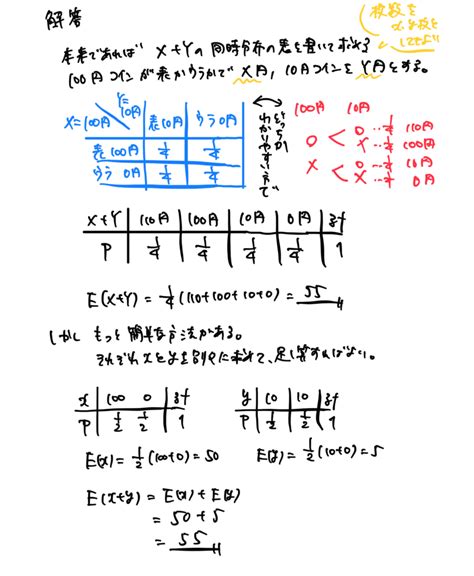 解答
枚数を
x,y枚と
してもよい
本来であれば X+Yの同時分布の表を書いて求める
100円コインが表かうらかで X円, 10円コインを Y円とする。
X=100円 Y=10円 表10円 うら0円
表100円 1/4 1/4
うら0円 1/4 1/4
どっちか
わかりやすい方で
100円 10円
○ < ○ … 1/4 110円
× … 1/4 100円
× < ○ … 1/4 10円
× … 1/4 0円
X+Y 110円 100円 10円 0円 計
P 1/4 1/4 1/4 1/4 1
E(X+Y) = 1/4 (110+100+10+0) = 55
しかし もっと簡単な方法がある。
それぞれxとyを別々に求めて、足し算すればよい。
x 100 0 計
P 1/2 1/2 1
y 10 10 計
P 1/2 1/2 1
E(x) = 1/2 (100+0) = 50
E(y) = 1/2 (10+0) = 5
E(x+y) = E(x) + E(y)
= 50 + 5
= 55